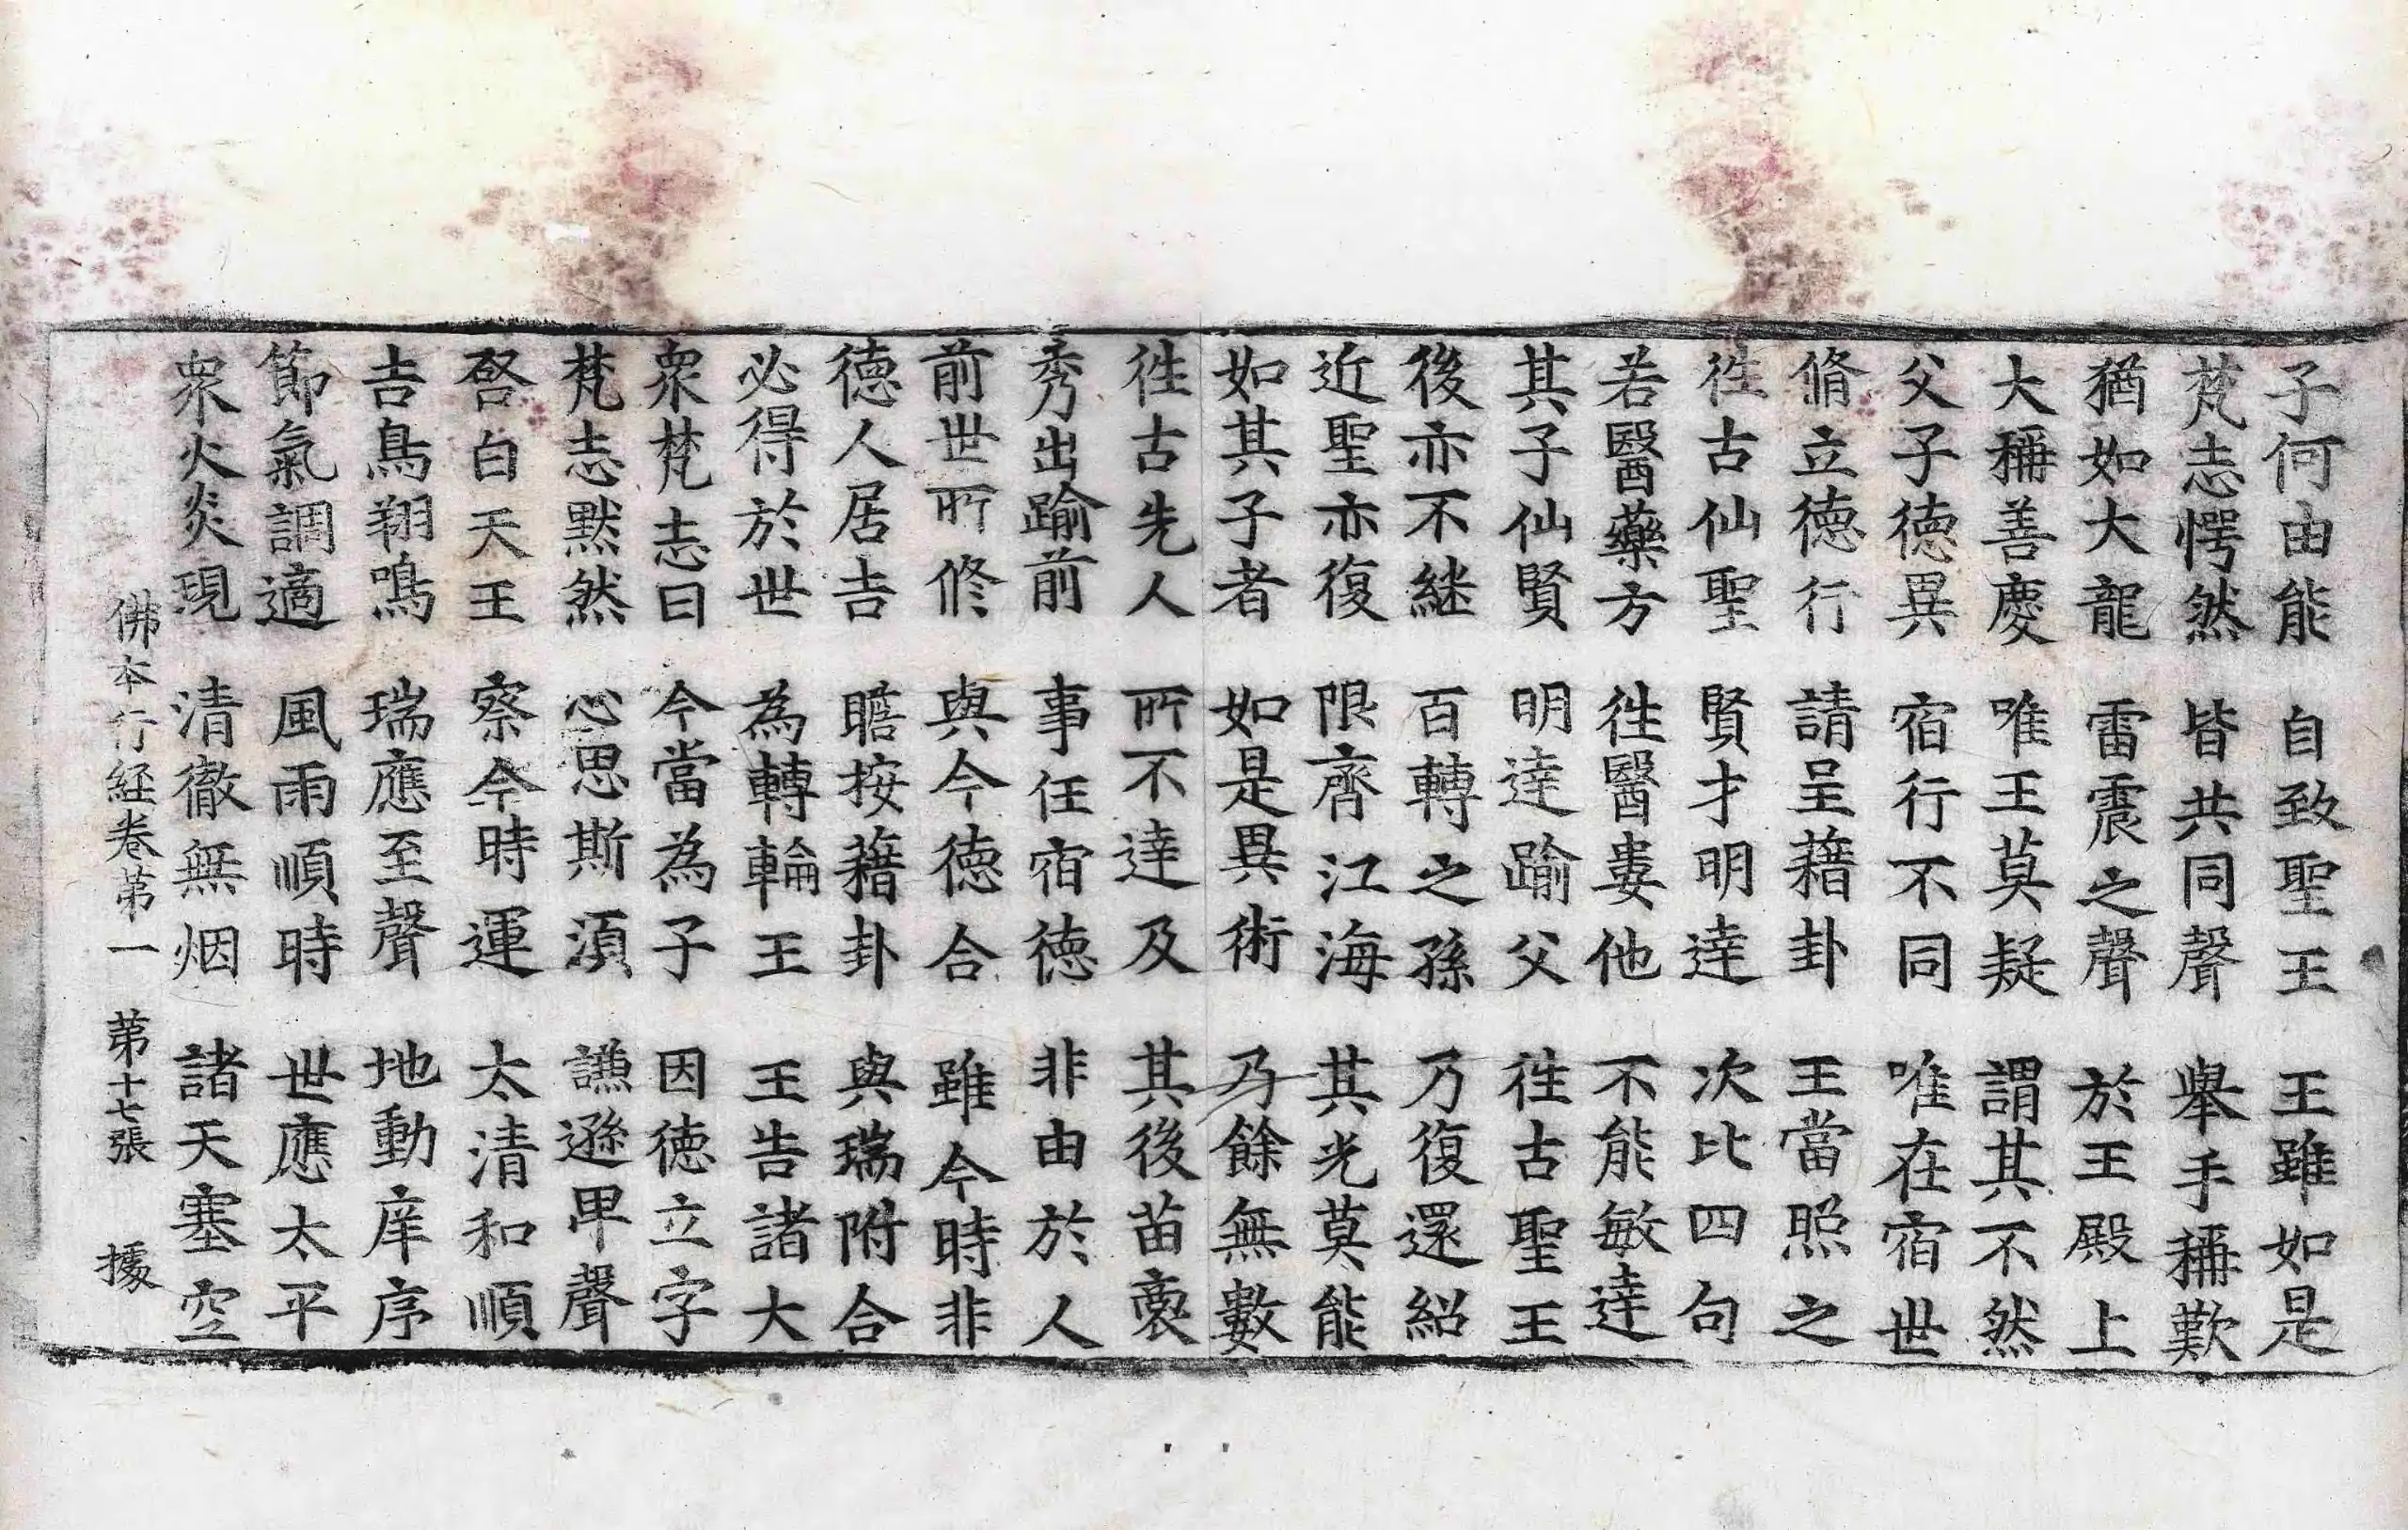 子何由能 自致聖王 王雖如是
梵志愕然 皆共同聲 舉手稱歎
猶如大龍 雷震之聲 於王殿上
大稱善慶 唯王莫疑 謂其不然
父子德異 宿行不同 唯在宿世
脩立德行 請呈藉卦 王當照之
往古仙聖 賢才明達 次比四句
若醫藥方 往醫婁他 不能敏達
其子仙賢 明達踰父 往古聖王
後亦不継 百轉之孫 乃復還紹
近聖亦復 限齊江海 其光莫能
如其子者 如是異術 乃餘無數
徃古先人 所不達及 其後苗裔
秀出踰前 事任宿德 非由於人
前世所修 與今德合 雖今時非
德人居吉 瞻按藉卦 與瑞附合
必得於世 為轉輪王 王告諸大
衆梵志曰 今當為子 因德立字
梵志默然 心思斯須 謙遜卑聲
啓白天王 察今時運 太清和順
吉鳥翔鳴 瑞應至聲 地動庠序
節氣調適 風雨順時 世應太平
衆火炎現 清徹無烟 諸天塞空
佛本行経卷第一 第十七張 據